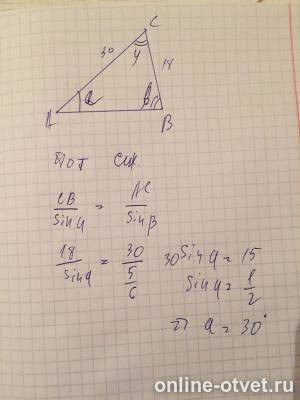 C
30
γ
18
α
β
A
B
По т син.
CB/sin α = AC/sin β
18/sin α = 30/(5/6)
30 sin α = 15
sin α = 1/2
П α = 30°
online-otvet.ru